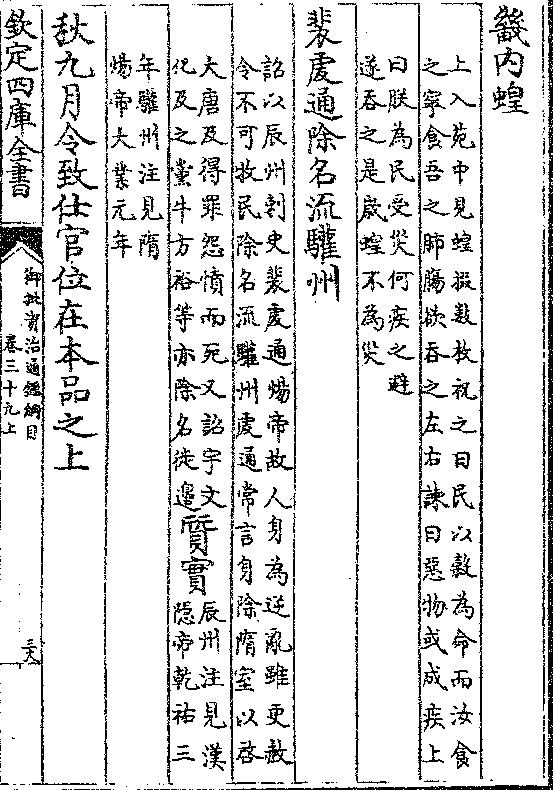 畿内蝗
上入苑中見蝗掇數枚祝之曰民以榖為命而汝食
之寧食吾之肺膓欲吞之左右諫曰惡物或成疾上
曰朕為民受災何疾之避
遂吞之是歳蝗不為災
裴䖍通除名流驩州
詔以辰州刺史裴䖍通煬帝故人身為逆亂雖更赦
令不可牧民除名流驩州䖍通常言身除隋室以啓
大唐及得罪怨憤而死又詔宇文
化及之黨牛方裕等亦除名徙邉
質實
辰州注見漢
隠帝乾祐三
年驩州注見隋
煬帝大業元年
秋九月令致仕官位在本品之上
欽定四庫全書
御批資治通鑑綱目
卷三十九上
三六